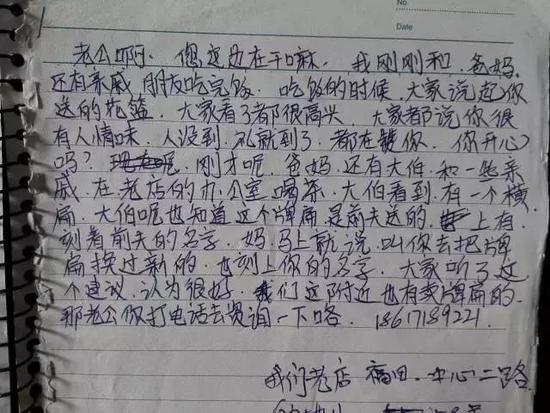 No
Date
老公啊. 您这边在干嘛. 我刚刚和. 爸妈.
还有亲戚 朋友吃完饭. 吃饭的时候. 大家说起你
送的花篮. 大家看了都很高兴. 大家都说你很
有人情味. 人没到. 礼就到了. 都在 你. 你开心
吗? 刚才呢. 爸妈. 还有大伯. 和一些亲
戚. 在老店的办公室喝茶. 大伯看到. 有一个横
扁. 大伯呢也知道这个牌扁是前夫送的 上有.
刻着前夫的名字. 妈.马上就说. 叫你去把牌
扁换过新的. 也刻上你的名字. 大家听了这
个建议. 认为很好. 我们这附近也有卖牌扁的.
那老公你打电话去资询一下咯. 18617189221.
我们老店 福田. 中心二路